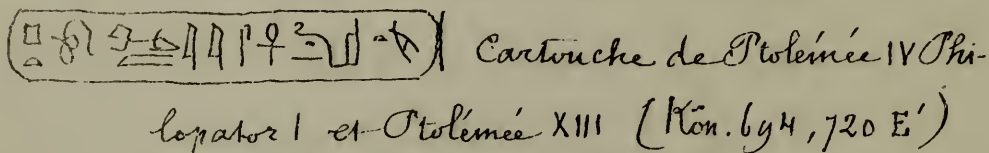 Cartouche de Ptolémée IV Phi-
lopator I et Ptolémée XIII (Kön. 694, 720 E')